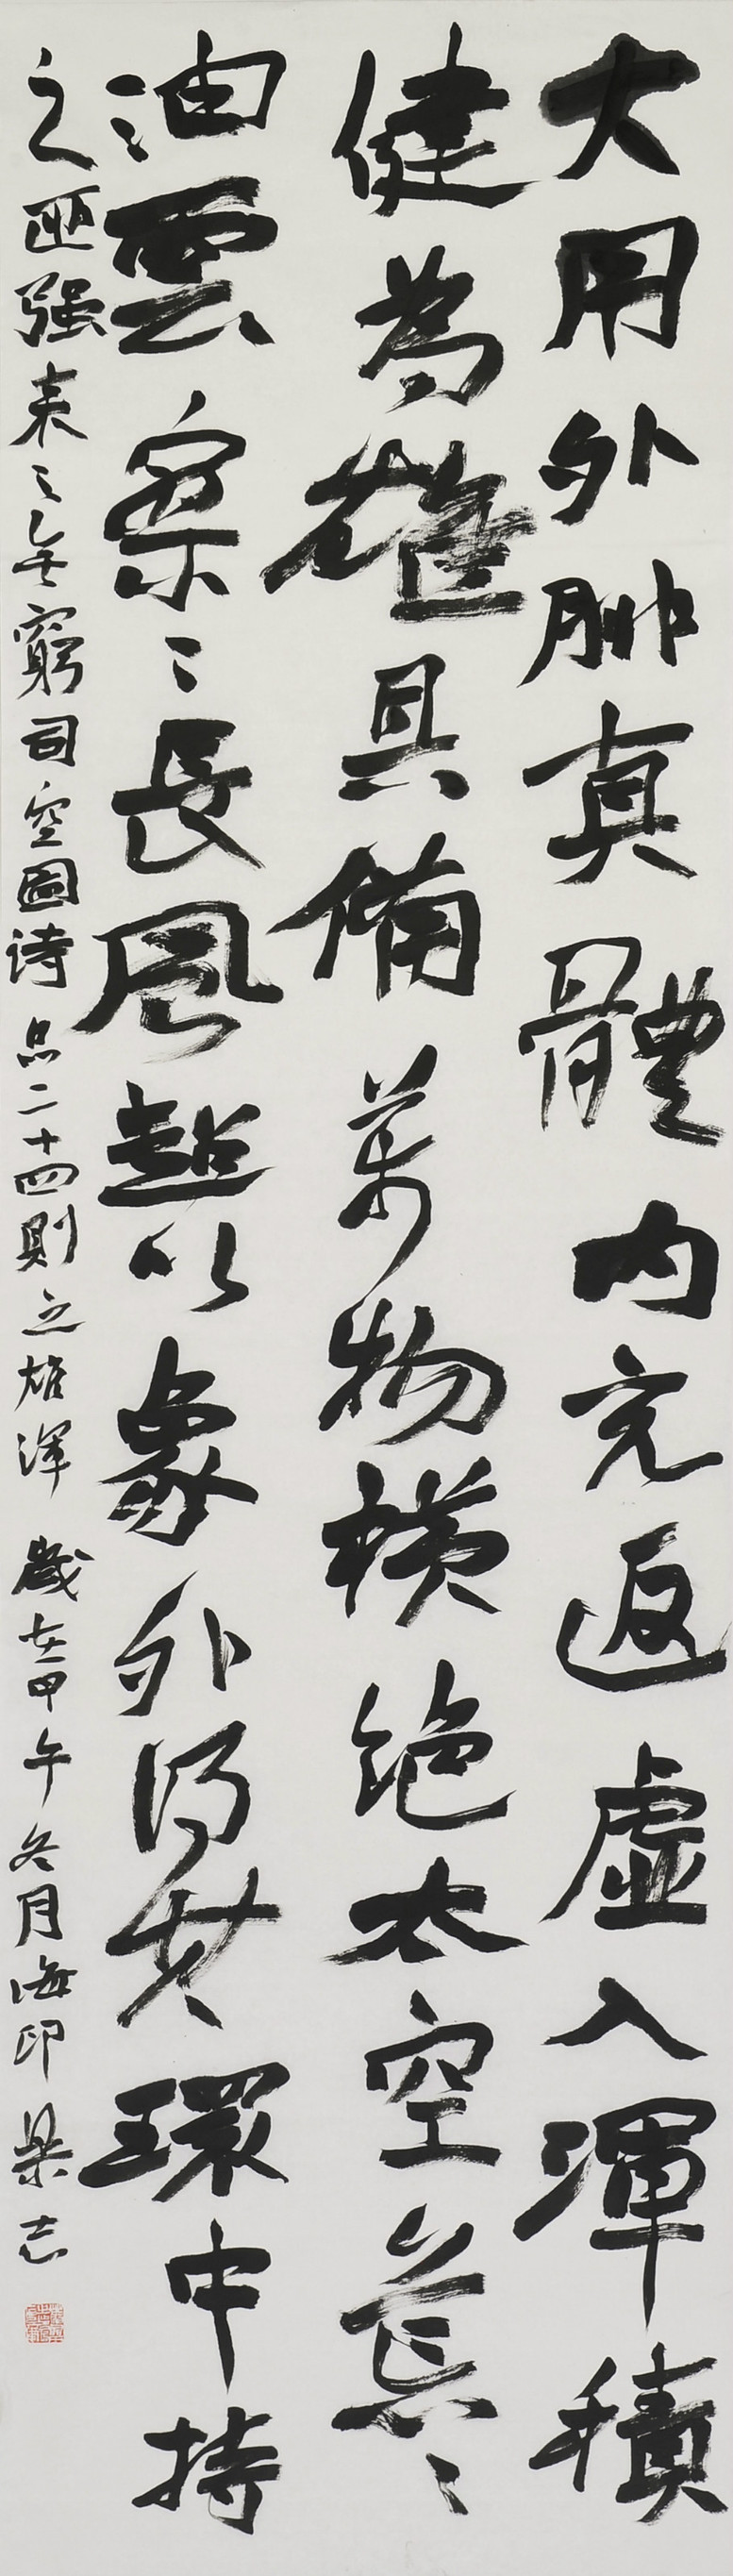 大用外腓真體内充返虛入渾積
健為雄具備萬物横絶太空荒〻
油雲寥〻長風超以象外得其環中持
之匪强来之無窮司空圖詩品二十四則之雄渾 歲在甲午冬月海印梁志